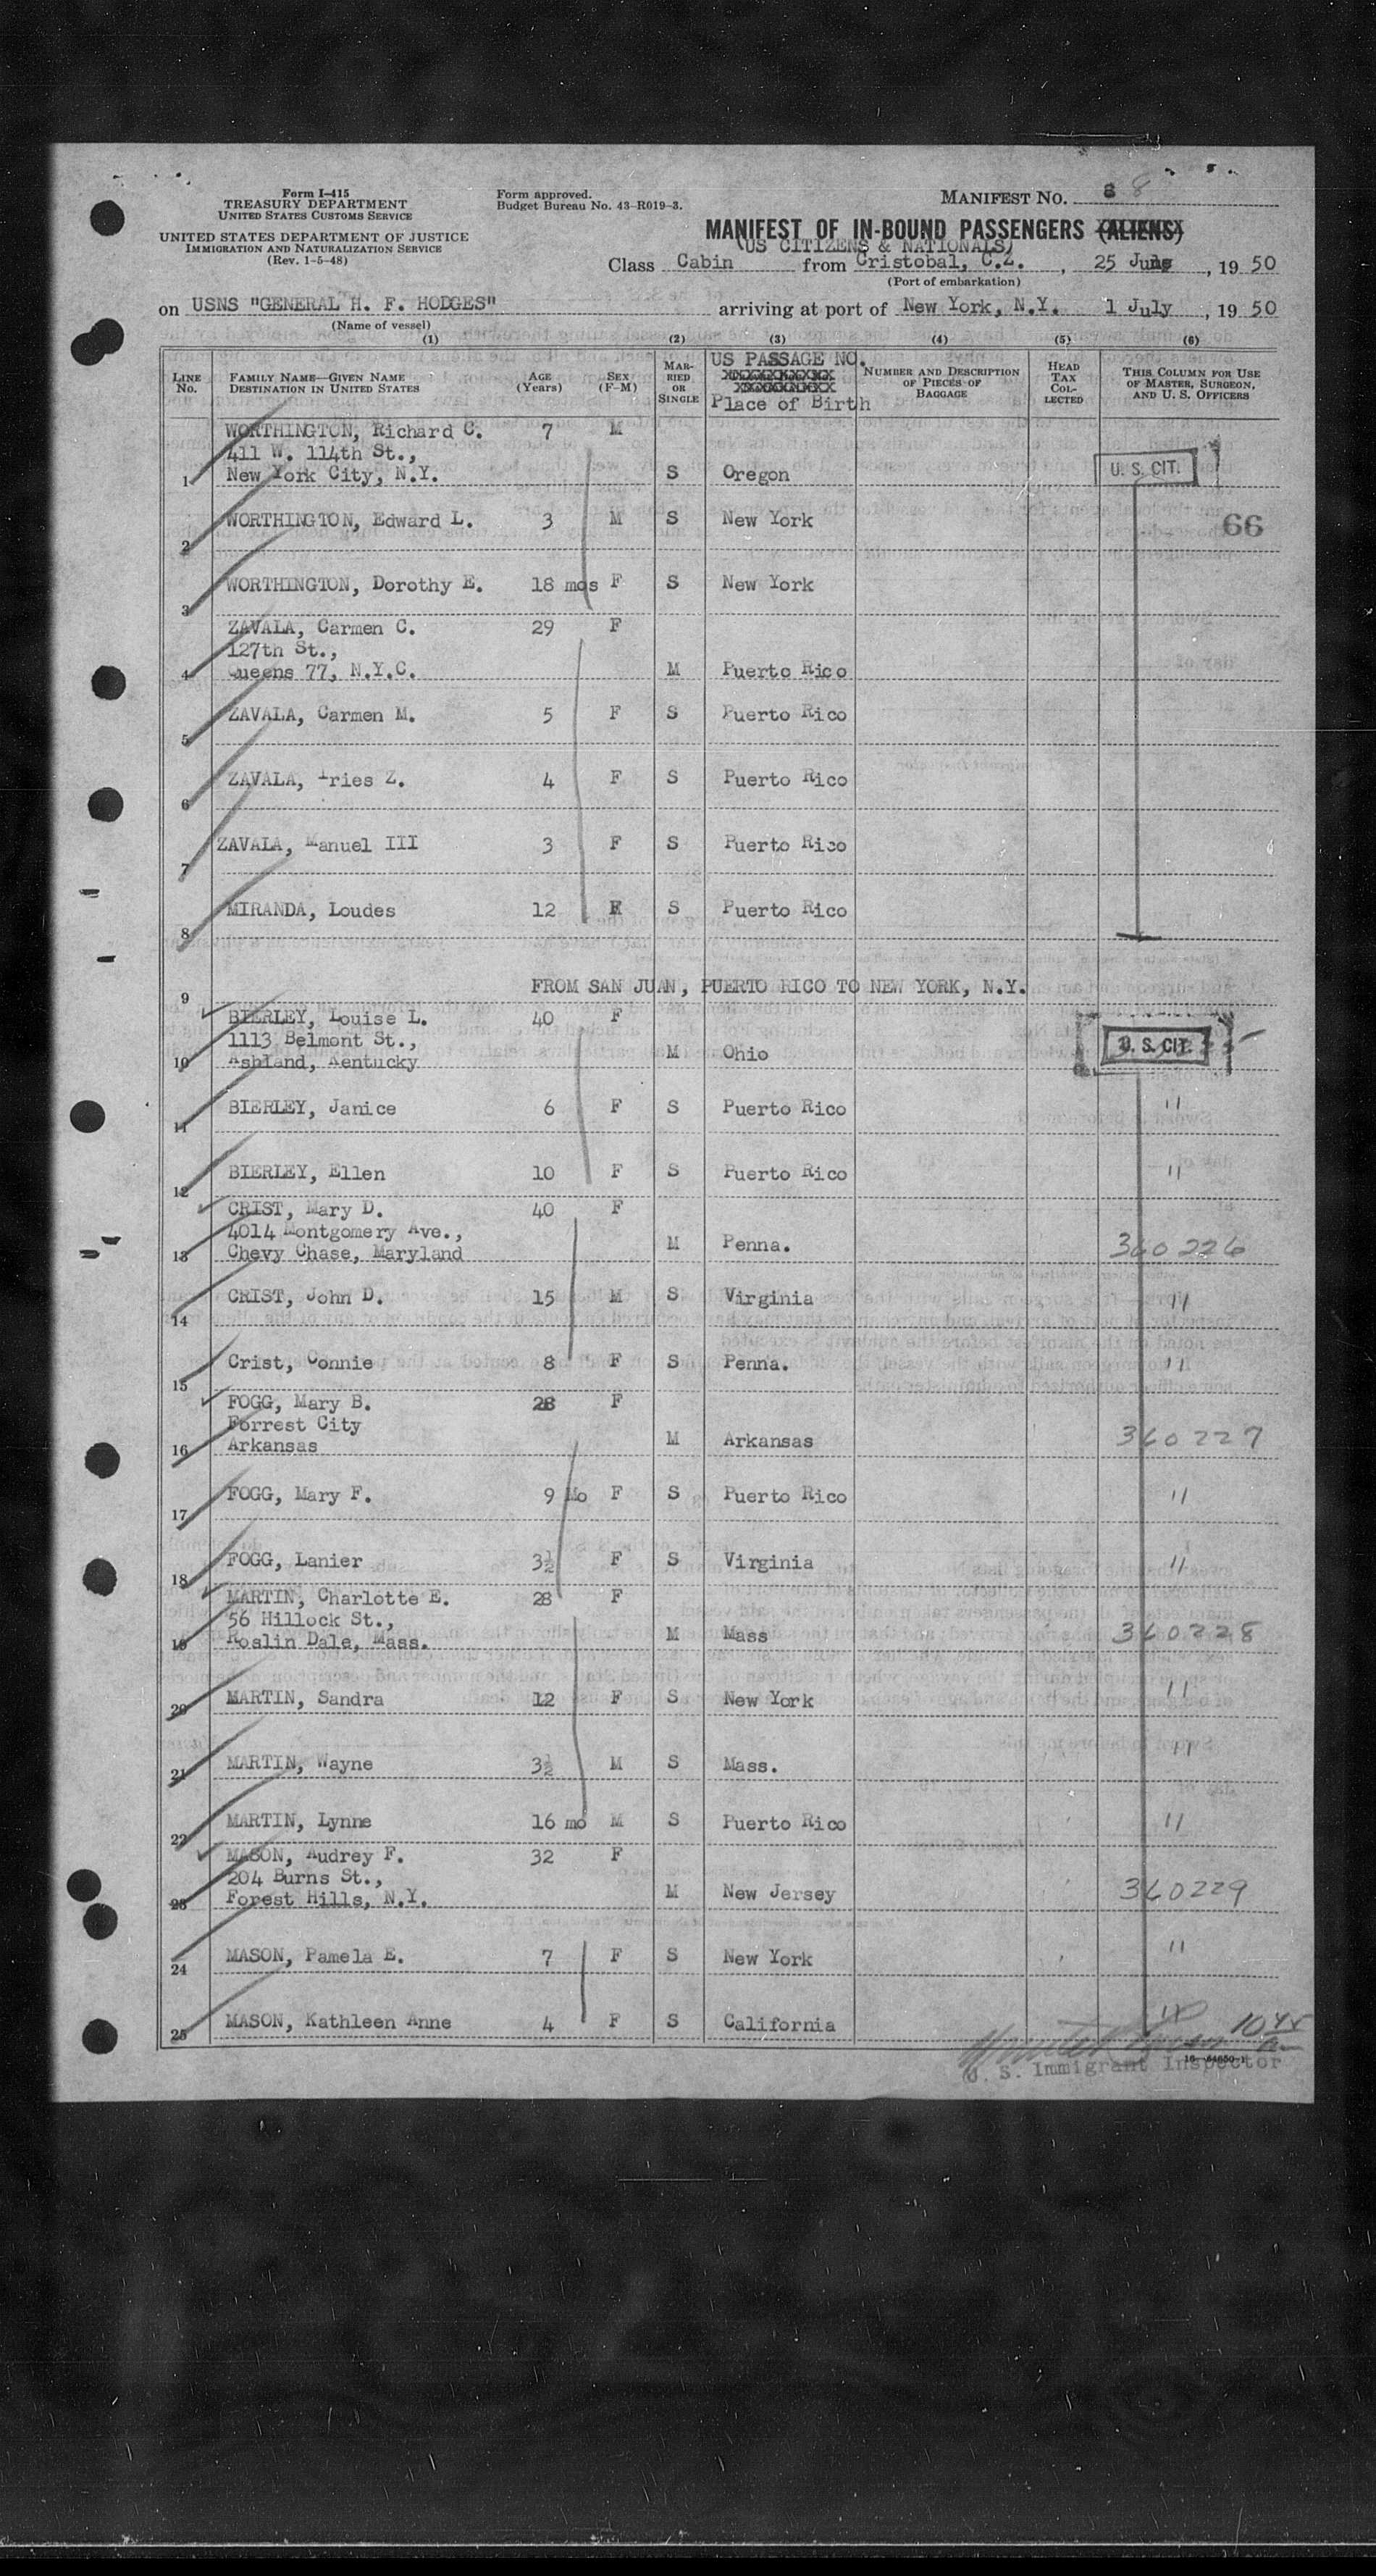 Form I-415
TREASURY DEPARTMENT
UNITED STATES CUSTOMS SERVICE
UNITED STATES DEPARTMENT OF JUSTICE
IMMIGRATION AND NATURALIZATION SERVICE
(Rev. 1-5-48)
Form approved.
Budget Bureau No. 43-R019-3.
MANIFEST NO. 8 8
MANIFEST OF IN-BOUND PASSENGERS (ALIENS)
(US CITIZENS & NATIONALS)
Class Cabin from Cristobal, C.Z. , 25 June , 19 50
(Port of embarkation)
on USNS "GENERAL H. F. HODGES" arriving at port of New York, N.Y. 1 July , 19 50
(Name of vessel)
(1) (2) (3) (4) (5) (6)
LINE No. FAMILY NAME—GIVEN NAME DESTINATION IN UNITED STATES AGE (Years) SEX (F-M) MARRIED OR SINGLE US PASSAGE NO. Place of Birth NUMBER AND DESCRIPTION OF PIECES OF BAGGAGE HEAD TAX COLLECTED THIS COLUMN FOR USE OF MASTER, SURGEON, AND U. S. OFFICERS
WORTHINGTON, Richard C. 7 M
411 W. 114th St.,
1 New York City, N.Y. S Oregon U. S. CIT.
2 WORTHINGTON, Edward L. 3 M S New York 66
3 WORTHINGTON, Dorothy E. 18 mos F S New York
ZAVALA, Carmen C. 29 F
127th St.,
4 Queens 77, N.Y.C. M Puerto Rico
5 ZAVALA, Carmen M. 5 F S Puerto Rico
6 ZAVALA, Iries Z. 4 F S Puerto Rico
7 ZAVALA, Manuel III 3 F S Puerto Rico
8 MIRANDA, Loudes 12 F S Puerto Rico
9 FROM SAN JUAN, PUERTO RICO TO NEW YORK, N.Y.
BIERLEY, Louise L. 40 F
1113 Belmont St.,
10 Ashland, Kentucky M Ohio U. S. CIT.
11 BIERLEY, Janice 6 F S Puerto Rico "
12 BIERLEY, Ellen 10 F S Puerto Rico "
CRIST, Mary D. 40 F
4014 Montgomery Ave.,
13 Chevy Chase, Maryland M Penna. 360226
14 CRIST, John D. 15 M S Virginia "
15 Crist, Connie 8 F S Penna. "
FOGG, Mary B. 28 F
Forrest City
16 Arkansas M Arkansas 360227
17 FOGG, Mary F. 9 Mo F S Puerto Rico "
18 FOGG, Lanier 3½ F S Virginia "
MARTIN, Charlotte E. 28 F
56 Hillock St.,
19 Roslin Dale, Mass. M Mass 360228
20 MARTIN, Sandra 12 F S New York "
21 MARTIN, Wayne 3½ M S Mass. "
22 MARTIN, Lynne 16 mo M S Puerto Rico "
MASON, Audrey F. 32 F
204 Burns St.,
23 Forest Hills, N.Y. M New Jersey 360229
24 MASON, Pamela E. 7 F S New York "
25 MASON, Kathleen Anne 4 F S California "
U. S. Immigrant Inspector